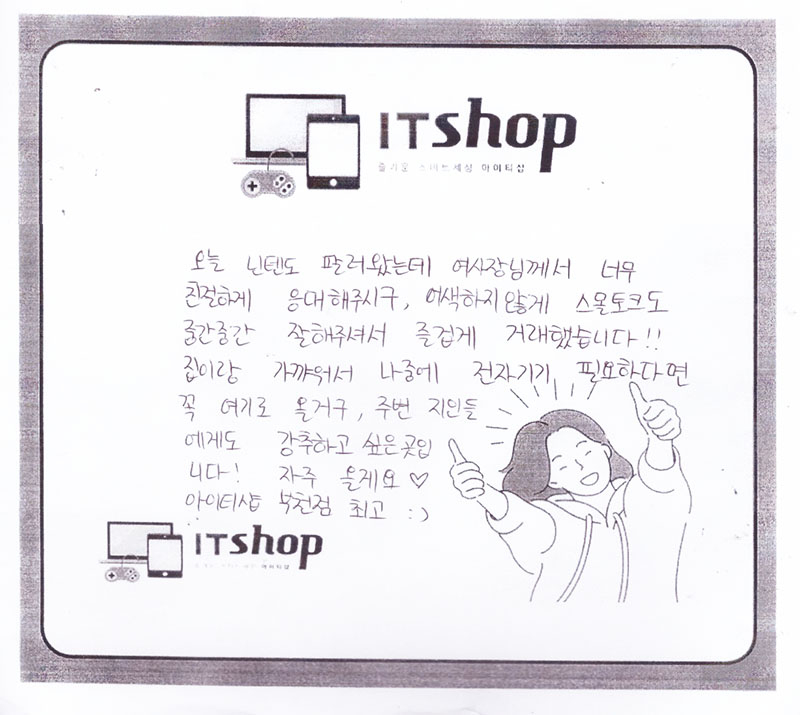 ITshop
즐거운 스마트세상 아이티샵
오늘 닌텐도 팔러왔는데 여사장님께서 너무
친절하게 응대해주시구, 어색하지않게 스몰토크도
중간중간 잘해주셔서 즐겁게 거래했습니다!!
집이랑 가까워서 나중에 전자기기 필요하다면
꼭 여기로 올거구, 주변 지인들
에게도 강추하고 싶은곳입
니다! 자주 올게요♡
아이티샵 부천점 최고 :)
ITshop
아이티샵